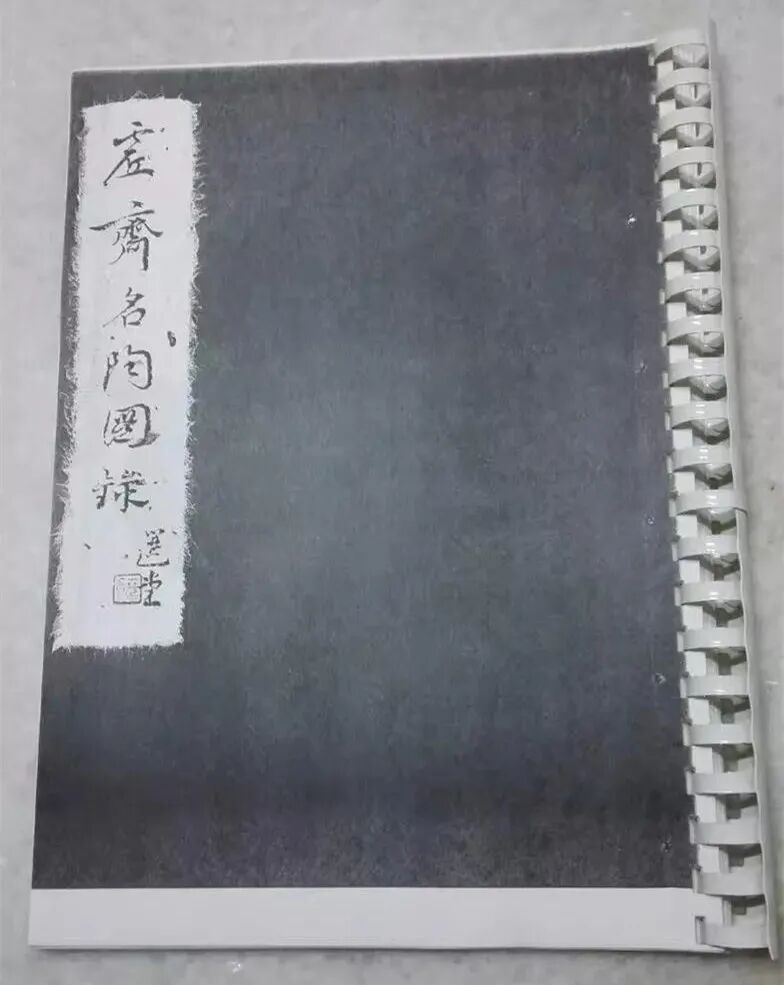 虛齋名陶圖錄
選堂